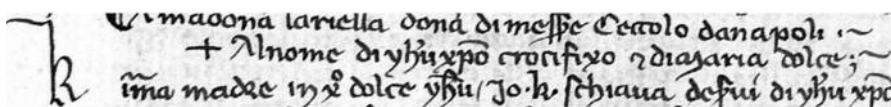 A madona lariella dona di messe Ceccolo da napoli .~
+ Al nome di yhu xpo crocifixo ⁊ di maria dolce ;~
K
ima madre in xo dolce yhu / Jo. k. schiava de servi di yhu xpo